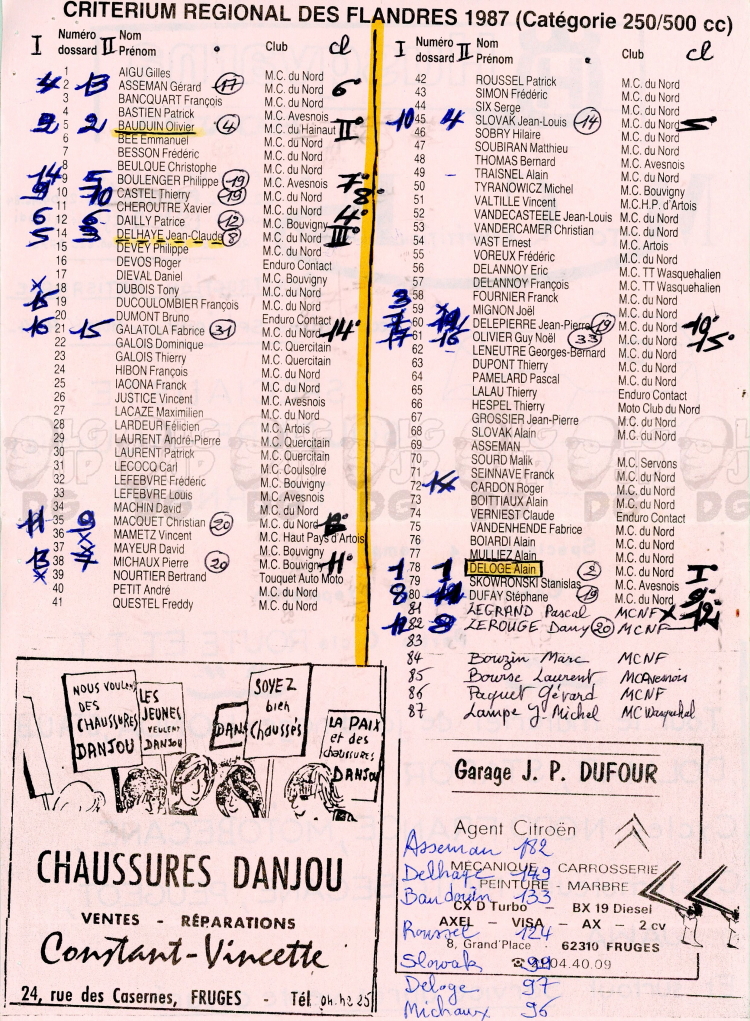 CRITERIUM REGIONAL DES FLANDRES 1987 (Catégorie 250/500 cc)
I Numéro dossard II Nom Prénom Club cl
1 AIGU Gilles M.C. du Nord
4 13 2 ASSEMAN Gérard 17 M.C. du Nord 6°
3 BANCQUART François M.C. du Nord
4 BASTIEN Patrick M.C. Avesnois
2 2 5 BAUDUIN Olivier 4 M.C. du Hainaut II°
6 BEE Emmanuel M.C. du Nord
7 BESSON Frédéric M.C. du Nord
8 BEULQUE Christophe M.C. du Nord
14 5 9 BOULENGER Philippe 19 M.C. Avesnois 7°
9 10 10 CASTEL Thierry 19 M.C. du Nord 8°
11 CHEROUTRE Xavier M.C. du Nord
6 6 12 DAILLY Patrice 12 M.C. Bouvigny 4°
5 3 14 DELHAYE Jean-Claude 8 M.C. du Nord III°
15 DEVEY Philippe M.C. du Nord
16 DEVOS Roger Enduro Contact
17 DIEVAL Daniel M.C. Bouvigny
x 18 DUBOIS Tony M.C. du Nord
15 19 DUCOULOMBIER François M.C. du Nord
20 DUMONT Bruno Enduro Contact
16 15 21 GALATOLA Fabrice 31 M.C. du Nord 14°
22 GALOIS Dominique M.C. Quercitain
23 GALOIS Thierry M.C. Quercitain
24 HIBON François M.C. du Nord
25 IACONA Franck M.C. du Nord
26 JUSTICE Vincent M.C. Avesnois
27 LACAZE Maximilien M.C. du Nord
28 LARDEUR Félicien M.C. Artois
29 LAURENT André-Pierre M.C. Quercitain
30 LAURENT Patrick M.C. Quercitain
31 LECOCQ Carl M.C. Coulsolre
32 LEFEBVRE Frédéric M.C. Bouvigny
33 LEFEBVRE Louis M.C. Avesnois
34 MACHIN David M.C. du Nord
11 9 35 MACQUET Christian 20 M.C. du Nord
36 x MAMETZ Vincent M.C. Haut Pays d'Artois
37 x MAYEUR David M.C. Bouvigny
13 7 38 MICHAUX Pierre 20 M.C. Bouvigny 11°
x 39 NOURTIER Bertrand Touquet Auto Moto
40 PETIT André M.C. du Nord
41 QUESTEL Freddy M.C. du Nord
I Numéro dossard II Nom Prénom Club cl
42 ROUSSEL Patrick M.C. du Nord
43 SIMON Frédéric M.C. du Nord
44 SIX Serge M.C. du Nord
10 4 45 SLOVAK Jean-Louis 14 M.C. du Nord 5°
46 SOBRY Hilaire M.C. du Nord
47 SOUBIRAN Matthieu M.C. du Nord
48 THOMAS Bernard M.C. Avesnois
49 TRAISNEL Alain M.C. du Nord
50 TYRANOWICZ Michel M.C. Bouvigny
51 VALTILLE Vincent M.C.H.P. d'Artois
52 VANDECASTEELE Jean-Louis M.C. du Nord
53 VANDERCAMER Christian M.C. du Nord
54 VAST Ernest M.C. Artois
55 VOREUX Frédéric M.C. du Nord
56 DELANNOY Eric M.C. TT Wasquehalien
57 DELANNOY Denis M.C. TT Wasquehalien
3 58 FOURNIER Franck M.C. du Nord
59 x MIGNON Joël M.C. du Nord
60 DELEPIERRE Jean-Pierre 19 M.C. du Nord 10°
17 61 16 OLIVIER Guy Noël 33 M.C. du Nord 15°
62 LENEUTRE Georges-Bernard M.C. du Nord
63 DUPONT Thierry M.C. du Nord
64 PAMELARD Pascal M.C. du Nord
65 LALAU Thierry Enduro Contact
66 HESPEL Thierry Moto Club du Nord
67 GROSSIER Jean-Pierre M.C. du Nord
68 SLOVAK Alain M.C. du Nord
69 ASSEMAN
70 SOURD Malik M.C. Servons
71 SEINNAVE Franck M.C. du Nord
72 14 CARDON Roger M.C. du Nord
73 BOITTIAUX Alain M.C. du Nord
74 VERNIEST Claude Enduro Contact
75 VANDENHENDE Fabrice M.C. du Nord
76 BOIARDI Alain M.C. du Nord
77 MULLIEZ Alain M.C. du Nord
1 78 1 DELOGE Alain 2 M.C. du Nord I°
79 SKOWRONSKI Stanislas M.C. Avesnois
8 80 DUFAY Stéphane 19 M.C. du Nord 9°
81 LEGRAND Pascal MCNF x
12 82 8 LEROUGE Dany 20 MCNF 12°
83
84 Bouzin Marc MCNF
85 Bourse Laurent MC Avesnois
86 Paquet Gérard MCNF
87 Lampe Y-Michel MC Wasquehal
NOUS VOULONS DES CHAUSSURES DANJOU
LES JEUNES VEULENT DANJOU
DANJ
SOYEZ bien Chaussés
LA PAIX et des chaussures DANJOU
CHAUSSURES DANJOU
VENTES - RÉPARATIONS
Constant-Vincette
24, rue des Casernes, FRUGES - Tél. 04.42.25
Garage J. P. DUFOUR
Agent Citroën
MÉCANIQUE - CARROSSERIE
PEINTURE - MARBRE
CX D Turbo - BX 19 Diesel
AXEL - VISA - AX - 2 cv
8, Grand'Place 62310 FRUGES
04.40.09
Asseman 182
Delhaye 149
Bauduin 133
Roussel 124
Slovak 99
Deloge 97
Michaux 96